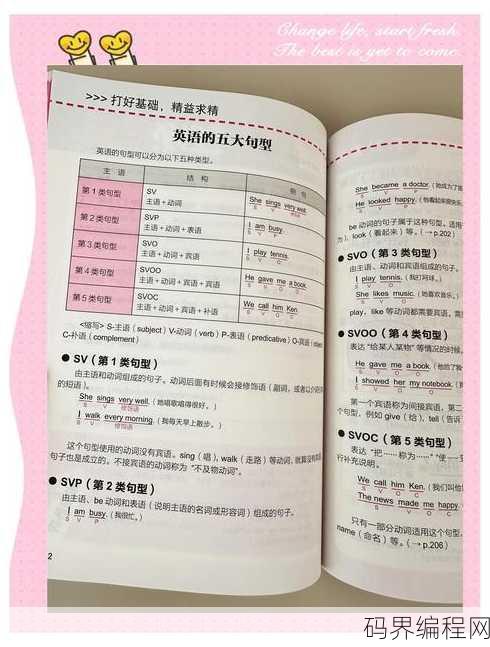 Change life, start fresh.
The best is yet to come.
>>> 打好基础，精益求精
英语的五大句型
英语的句型可以分为以下五种类型。
主 语 结 构 例 句
第1类句型 SV She sings very well.
主语+动词 S V 修饰语
第2类句型 SVP I am busy.
主语+动词+表语 S V P
第3类句型 SVO I play tennis.
主语+动词+宾语 S V O
第4类句型 SVOO He gave me a book.
主语+动词+宾语+宾语 S V O O
第5类句型 SVOC We call him Ken.
主语+动词+宾语+补语 S V O C
<缩写> S-主语（subject）V-动词（verb）P-表语（predicative）O-宾语（object）
C-补语（complement）
● SV（第1类句型）
由主语和动词组成的句子。动词后面有时候会接修饰语（副词，或者以介词
的短语）。
She sings very well.（她唱歌唱得很好。）
S V 修饰语
I walk every morning.（我每天早上散步。）
S V 修饰语
这个句型使用的动词没有宾语。sing（唱），walk（走路）等动词，就算没有宾语
句子也是成立的。不接宾语的动词称为“不及物动词”。
● SVP（第2类句型）
由主语、be动词和表语（说明主语的名词或形容词）组成的句子。
I am busy.（我很忙。）
S V P
2
She became a doctor.（她成为了医
S V P
He looked happy.（他看起来很快乐
S V P
be动词的句子属于这种句型。适用
为），look（看起来）等。（→p.202）
● SVO（第3类句型）
由主语、动词和宾语组成的句子。
I play tennis.（我打网球。）
S V O
She likes music.（她喜欢音乐。）
S V O
play，like等动词都需要宾语，需
● SVOO（第4类句型）
表达“给某人某物”等情况的时候
He gave me a book.（他给了我
S V O O
I showed her my notebook.（我
S V O O
第一个宾语称为间接宾语，第二
个句型，例如give（给），tell（告诉
● SVOC（第5类句型）
表达“把……称为……”“使……
行补充说明。
We call him Ken.（我们叫他
S V O C
The news made me happy.
S V O C
只有一部分动词适用这个句型，
name（命名）等。（→p.206）
码界编程网